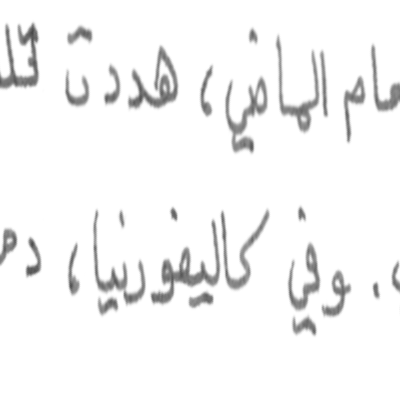 عام الماضي، هددت
. وفي كاليفورنيا، د